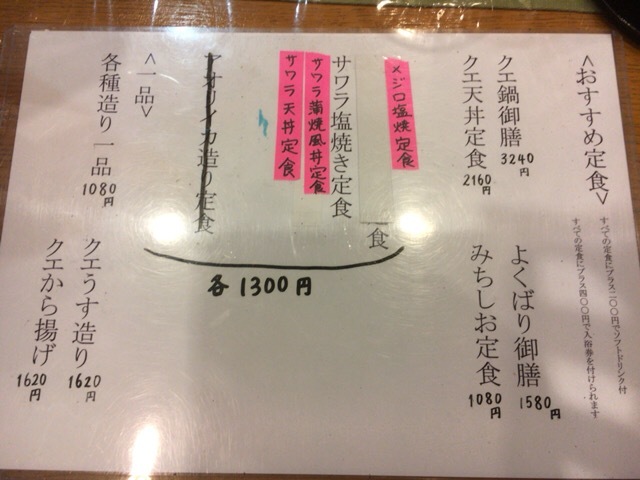 <おすすめ定食>
すべての定食にプラス二〇〇円でソフトドリンク付
すべての定食にプラス四〇〇円で入浴券を付けられます
クエ鍋御膳
3240円
クエ天丼定食
2160円
よくばり御膳
1580円
みちしお定食
1080円
メジロ塩焼定食
食
サワラ塩焼き定食
サワラ蒲焼風丼定食
サワラ天丼定食
アオリイカ造り定食
各1300円
<一品>
各種造り一品
1080円
クエうす造り
1620円
クエから揚げ
1620円